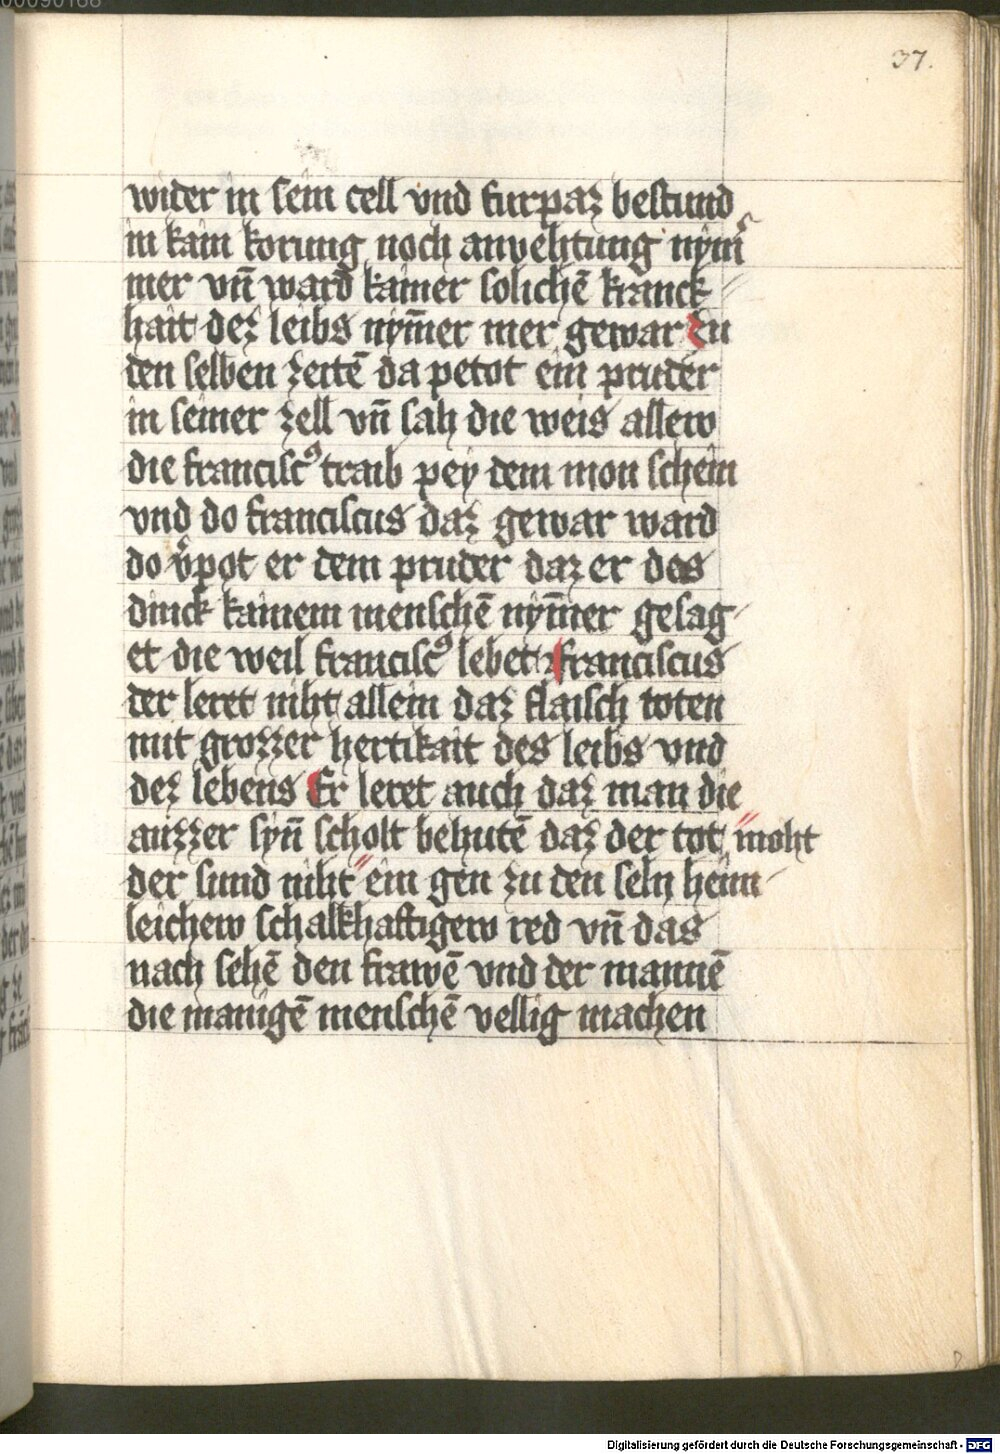 00090168
37.
wider in sein cell vnd furpaz bestund
in kain korung noch anvehtung nym̄
mer vn̄ ward kainer solichē kranck
hait dez leibs nym̄er mer gewar Zu
den selben zeitē da petot ein pruder
in seiner zell vn̄ sah die weis allew
die francisc⁹ traib pey dem mon schein
vnd do franciscus daz gewar ward
do v̓pot er dem pruder daz er des
dinck kainem menschē nym̄er gesag
et die weil francisc⁹ lebet Franciscus
der leret niht allein daz flaisch toten
mit grozzer hertikait des leibs vnd
dez lebens Er leret auch daz man die
auzzer syn̄ scholt behutē daz der tot moht
der sund niht ein gen zu den seln heim
leichew schalkhaftigew red vn̄ das
nach sehē den frawē vnd der mannē
die manigē menschē vellig machen
Digitalisierung gefördert durch die Deutsche Forschungsgemeinschaft - DFG